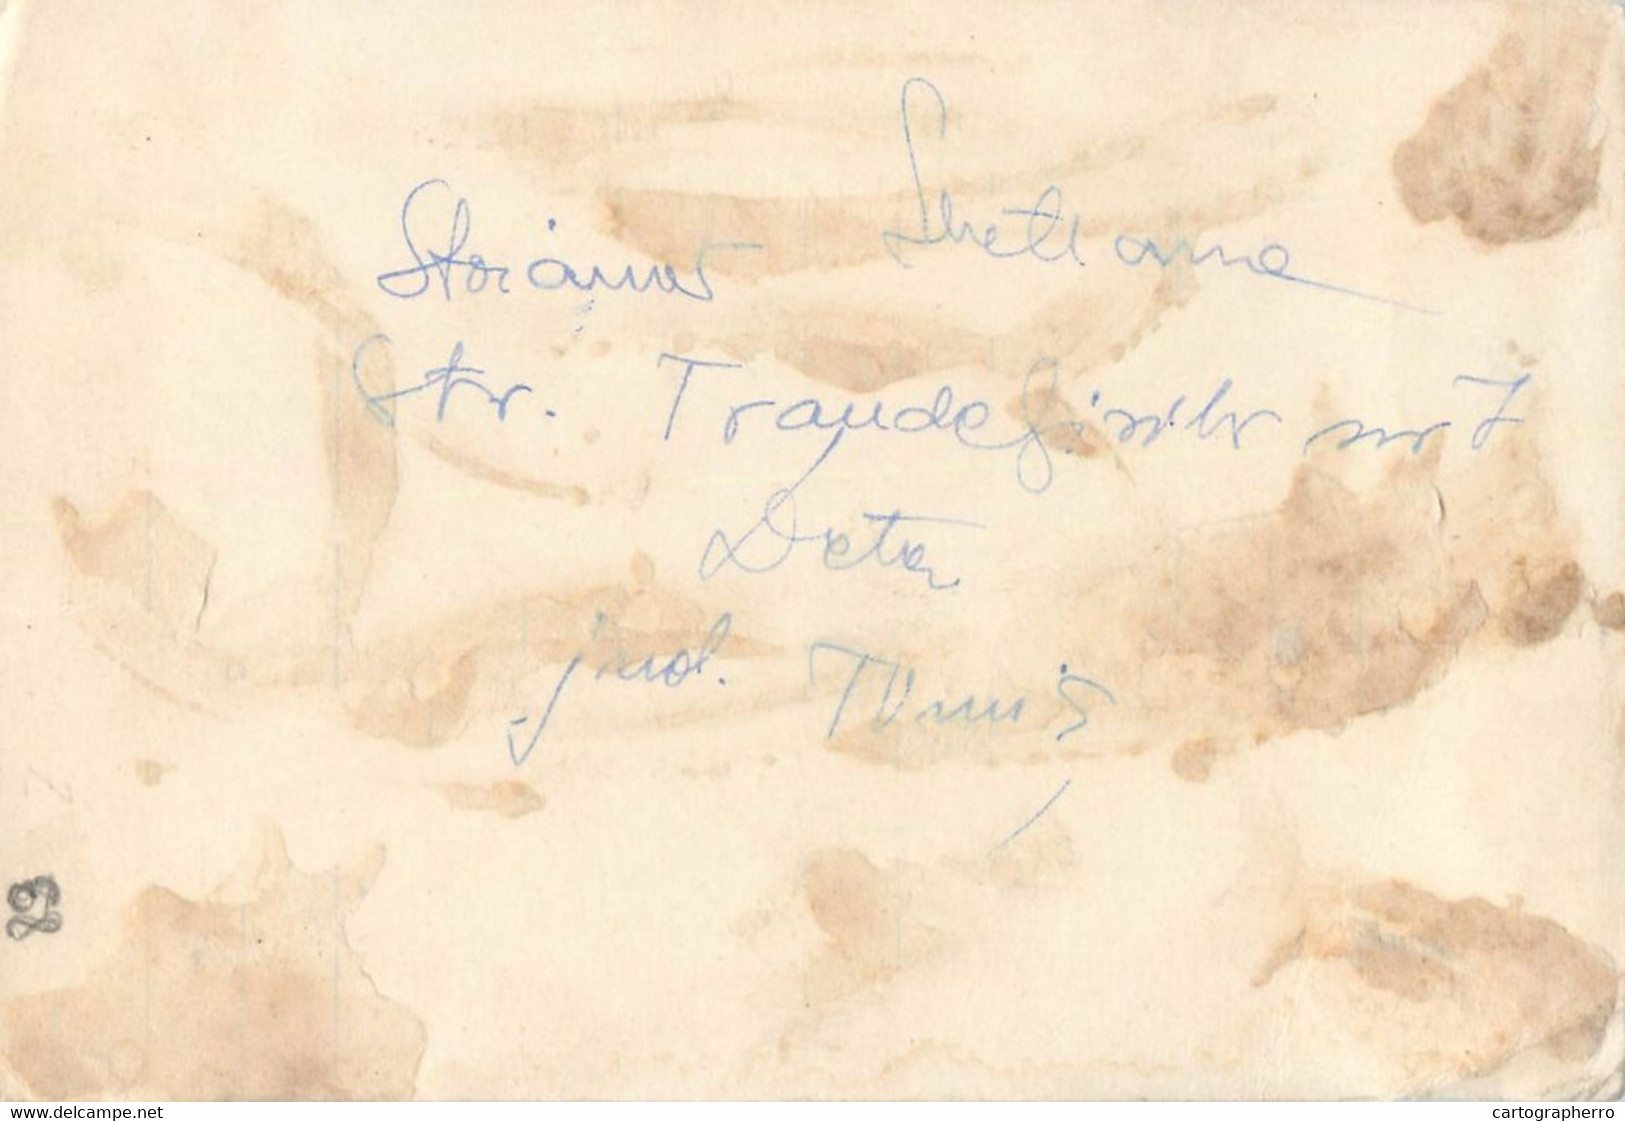 Stoianov Svetlana
Str. Trandafirilor nr 7
Deta
jud. Timiș
83
www.delcampe.net
cartographerro